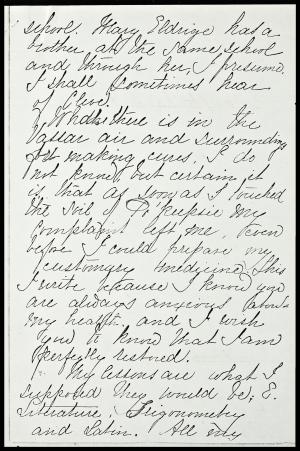 school. Mary Eldrige has a
brother at the same school
and through her, I presume,
I shall sometimes hear
of Clive.
What there is in the
Vassar air and surrounding
for making cures, I do
not know, but certain it
is that as soon as I touched
the soil of Po'keepsie my
complaint left me, even
before I could prepare my
customary medicine. This
I write because I know you
are always anxious about
my health, and I wish
you to know that I am
perfectly restored.
My lessons are what I
supposed they would be; E.
Literature, Trigonometry
and Latin. All my